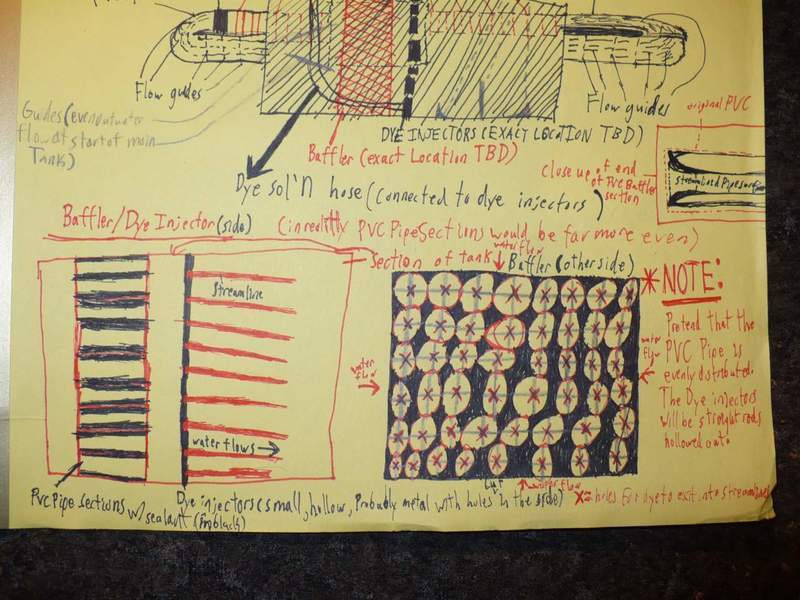 Flow guides
Flow guides
Guides (even out water
flow at start of main
Tank)
DYE INJECTORS (EXACT LOCATION TBD)
Baffler (exact Location TBD)
original PVC
Close up of end
of PVC Baffler
section
Streamlined Pipe surface
Dye sol'n hose (connected to dye injectors)
Baffler/Dye Injector (side)
(in reality PVC Pipe Sections would be far more even)
Section of tank
water flow
Baffler (other side)
*NOTE:
Pretend that the
PVC Pipe is
evenly distributed.
The Dye injectors
will be straight rods
hollowed out.
Streamline
water flows
water
flow
water
flow
PVC Pipe sections
w/ sealant (in black)
Dye injectors (small, hollow, Probably metal with holes in the side)
water flow
X= holes for dye to exit into streamlines